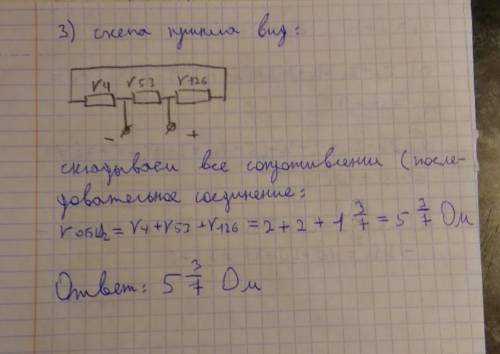 3) схема приняла вид:
r4 r53 r126
- +
складываем все сопротивлении (после-
довательное соединение:
rобщ = r4 + r53 + r126 = 2 + 2 + 1 3/7 = 5 3/7 Ом
Ответ: 5 3/7 Ом